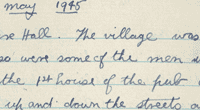 may 1945
se Hall. The village was
so were some of the men
the 1st house of the pub
up and down the streets a